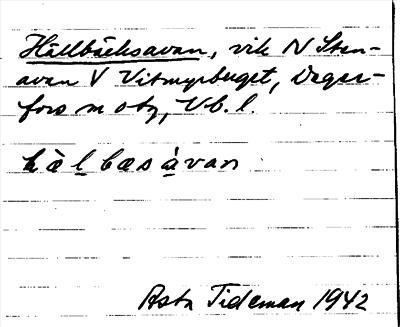 Hällbäcksavan, vik N Sten-
avan V Vitmyrbuget, Deger-
fors m oty, Vb. l.
hälbæsàvan
Asta Tideman 1942